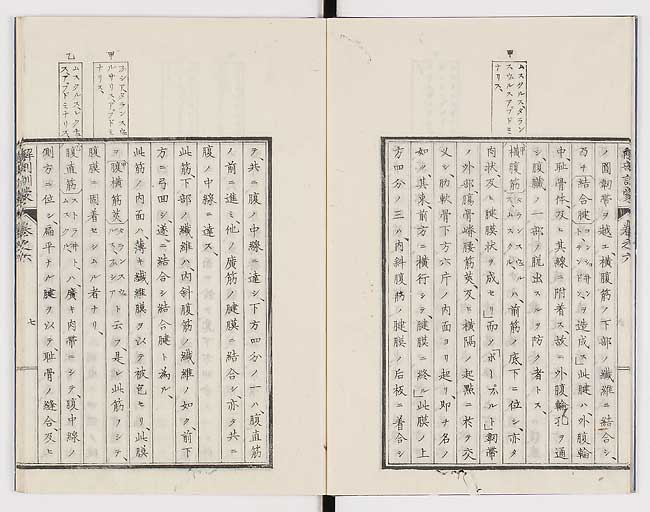 甲
ムスクルスタランス
スウルスアブドミ
ナリス、
ノ圓靭帶ヲ越エ横腹筋ノ下部ノ纎維ニ結合シ、
乃チ結合腱 ヲ造成ス」此腱ハ外腹輪
中、耻骨体及ヒ其線ニ附着ス、故ニ外腹輪孔ヲ通
シ、腹臓ノ一部ヲ脱出スルヲ防ク者トス、
横腹筋 ハ、前筋ノ底下ニ位シ、亦タ
肉狀及ヒ腱膜狀ヲ成セリ」而メ「ポーパルト」靭帶
ノ外部、腸骨嵴、腰筋莢及ヒ横隔ノ起點ニ於テ交
叉シ、肋軟骨下方六斤ノ内面ヨリ起リ、即チ名ノ
如ク、其束、前方ニ横行シテ、腱膜ニ終ル」此膜ノ上
方四分ノ三ハ、内斜腹筋ノ腱膜ノ后板ニ着合シ
甲
ルサリス
ナリス、
乙
ムスクルスレクチュ
スアブドミナリス、
テ共ニ腹ノ中線ニ達シ、下方四分ノ一ハ、腹直筋
ノ前ニ進ミ、他ノ廣筋ノ腱膜ニ結合シ、亦タ共ニ
腹ノ中線ニ達ス、
此筋下部ノ纎維ハ、内斜腹筋ノ纎維ノ如ク前下
方ニ弓囬シ、遂ニ結合シ結合腱ト為ル、
此筋ノ内面ハ、薄キ纎維膜ヲ以テ被包セリ、此膜
ヲ腹横筋莢 ト云フ、是レ此筋ヲシテ
腹膜ニ固着セシムル者ナリ、
腹直筋 ハ、廣キ肉帶ニシテ、腹中線ノ
側方ニ位シ、扁平ナル腱ヲ以テ、耻骨ノ縫合及ヒ
解剖訓蒙 卷之六
七